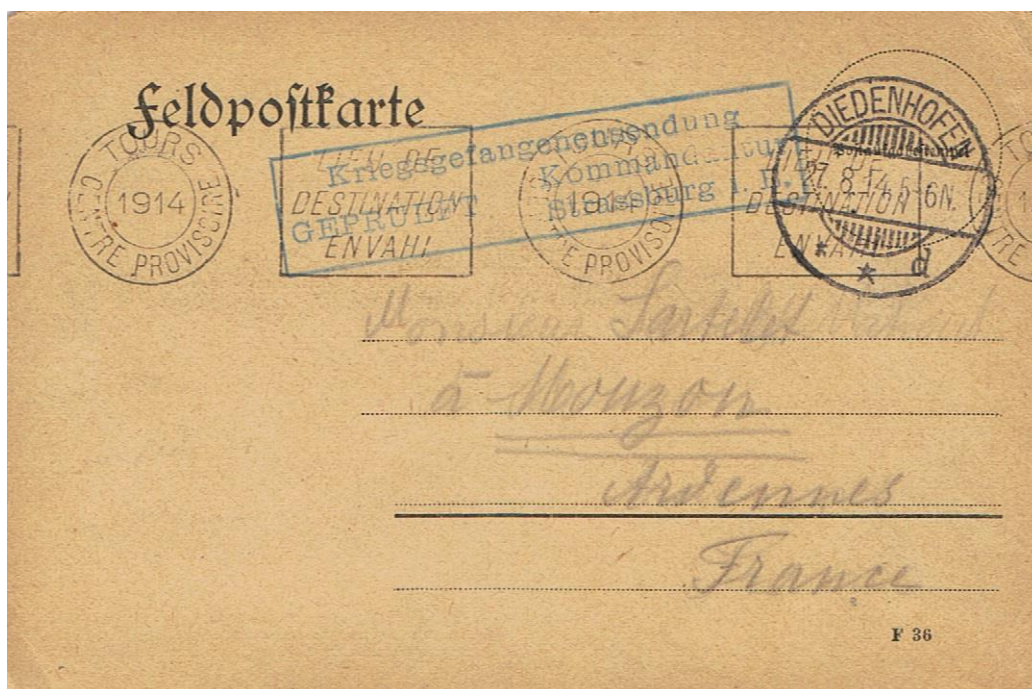 Feldpostkarte
TOURS
1914
CENTRE PROVISOIRE
LIEU DE
DESTINATION
ENVAHI
Kriegsgefangenensendung
Kommandantur
GEPRÜFT Strassburg i. E.
1914
PROVISOIRE
LIEU DE
DESTINATION
ENVAHI
DIEDENHOFEN
27.8.14.5-6N.
* * d
Monsieur
à Mouzon
Ardennes
France
F 36